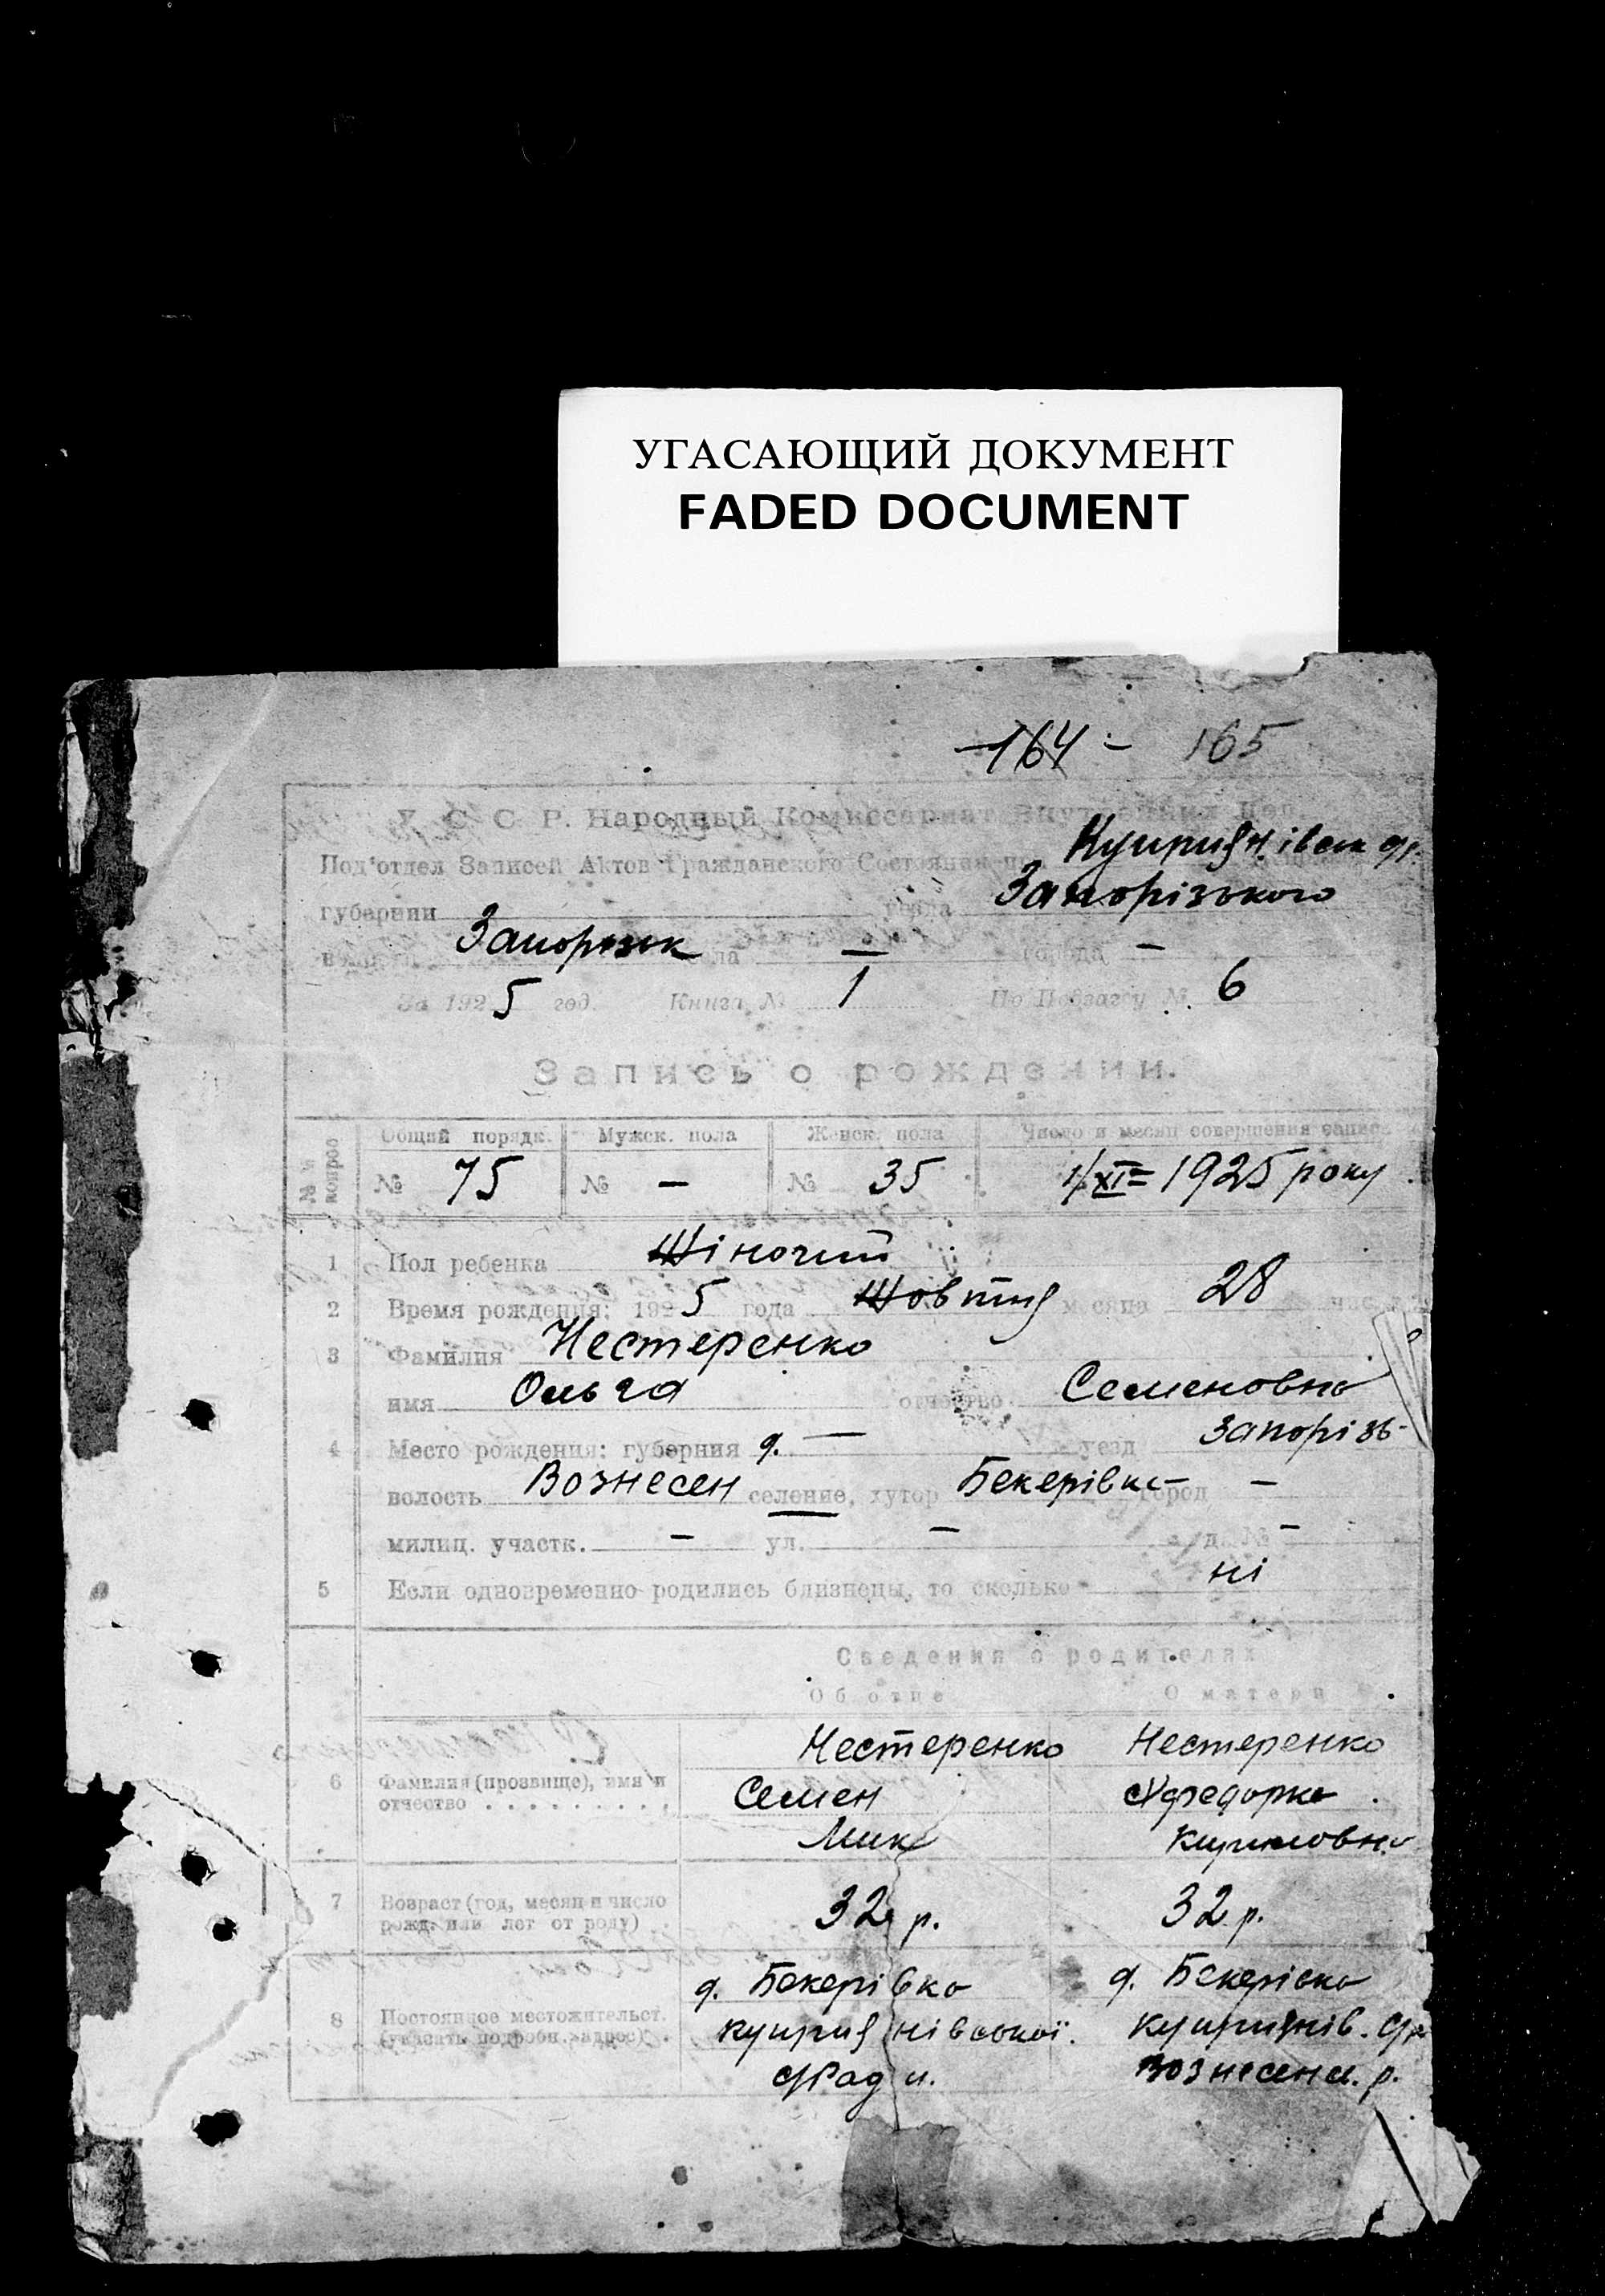 УГАСАЮЩИЙ ДОКУМЕНТ
FADED DOCUMENT
164 - 165
У. С. С. Р. Народный Комиссариат Внутренних Дел.
Под'отдел Записей Актов Гражданского Состояния
губернии Запорізького
Запорізьк села — города —
За 1925 год. Книга № 1 По Подзагсу № 6
Запись о рождении.
Общий порядк. Мужск. пола Женск. пола Число и месяц совершения записи
№ 75 № — № 35 1/XI 1925 року
1 Пол ребенка Жіночий
2 Время рождения: 1925 года Жовтня месяца 28
3 Фамилия Нестеренко
имя Ольга отчество Семеновна
4 Место рождения: губерния д. — уезд Запорізь-
волость Вознесен селение, хутор Бекерівка город —
милиц. участк. — ул. — д. № —
5 Если одновременно родились близнецы, то сколько ні
Сведения о родителях
Об отце О матери
Нестеренко Нестеренко
6 Фамилия (прозвище), имя и отчество Семен
Мик Кириловна
7 Возраст (год, месяц и число рожд. или лет от роду) 32 р. 32 р.
д. Бекерівка д. Бекерівка
8 Постоянное местожительст. (указать подробн. адрес) Куприянівської Куприянів.
с/Ради. Вознесенс. р.